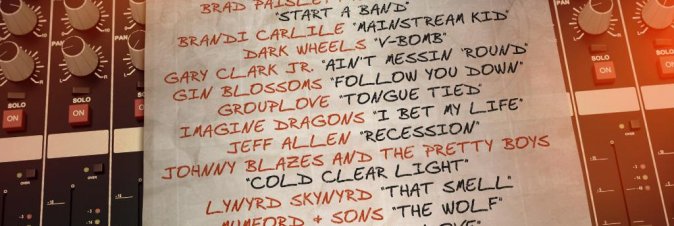 BRAD PAISLEY
"START A BAND"
BRANDI CARLILE "MAINSTREAM KID"
DARK WHEELS "V-BOMB"
GARY CLARK JR. "AIN'T MESSIN 'ROUND"
GIN BLOSSOMS "FOLLOW YOU DOWN"
GROUPLOVE "TONGUE TIED"
IMAGINE DRAGONS "I BET MY LIFE"
JEFF ALLEN "RECESSION"
JOHNNY BLAZES AND THE PRETTY BOYS
"COLD CLEAR LIGHT"
LYNYRD SKYNYRD "THAT SMELL"
MUMFORD + SONS "THE WOLF"
PAN
SOLO
ON
SOLO
ON
PAN
SOLO
ON
PAN
SOLO
ON